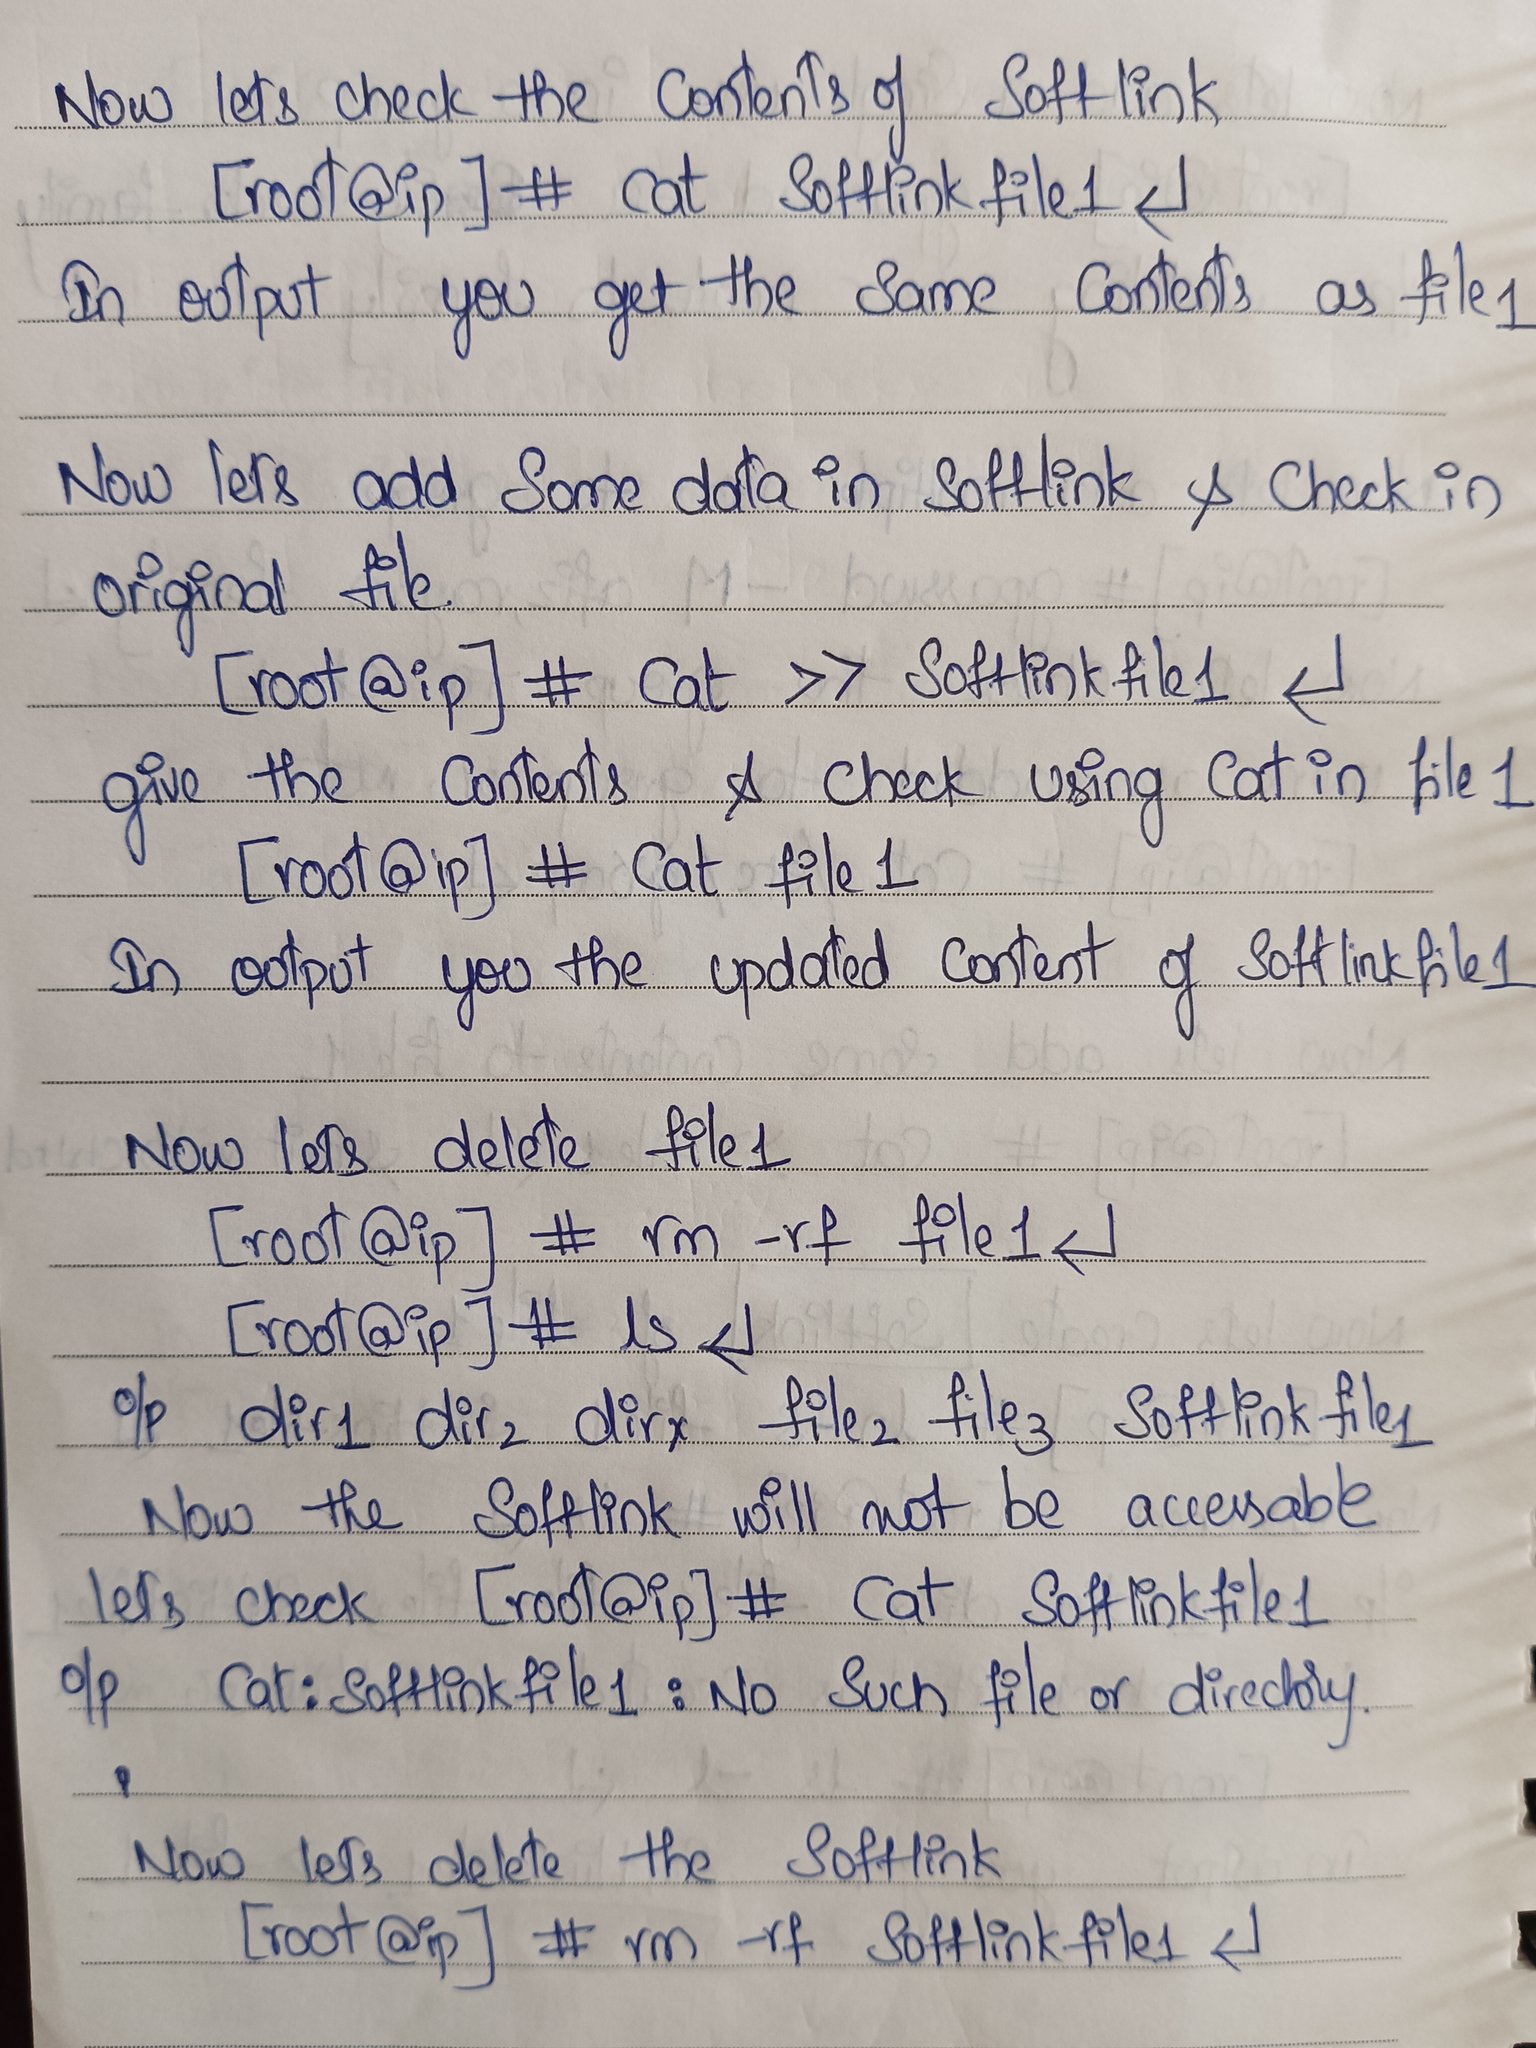 Now lets check the Contents of Softlink
[root@ip]# Cat Softlinkfile1 ↵
In output you get the Same Contents as file1
Now lets add Some data in Softlink & Check in
original file.
[root@ip] # Cat >> Softlinkfile1 ↵
give the Contents & Check using Cat in file 1
[root@ip] # Cat file 1
In output you the updated Content of Softlinkfile1
Now lets delete file1
[root@ip] # rm -rf file1 ↵
[root@ip] # ls ↵
o/p dir1 dir2 dirx file2 file3 Softlinkfile1
Now the Softlink will not be accessable
lets check [root@ip]# Cat Softlinkfile1
o/p Cat: Softlinkfile1 : No Such file or directory.
Now lets delete the Softlink
[root@ip] # rm -rf Softlinkfile1 ↵